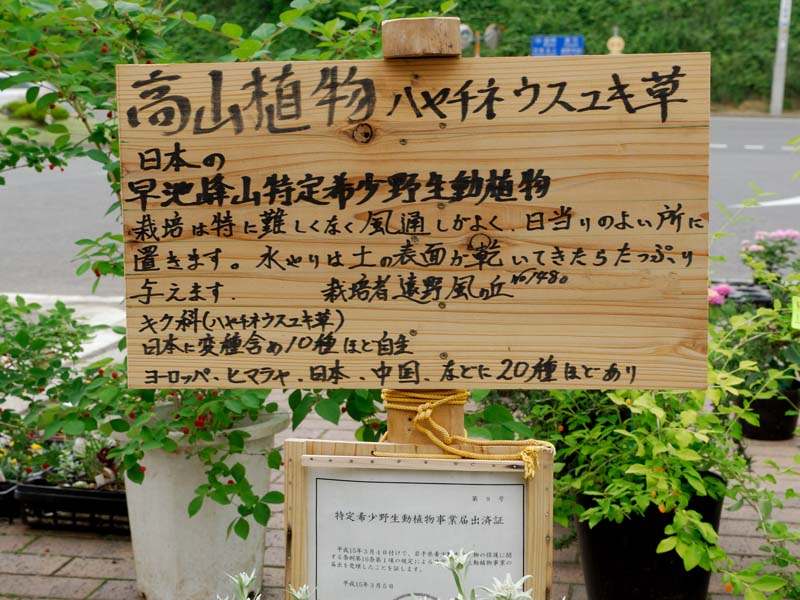 高山植物 ハヤチネウスユキ草
日本の
早池峰山特定希少野生動植物
栽培は特に難しくなく風通しがよく、日当りのよい所に
置きます。水やりは土の表面が乾いてきたらたっぷり
与えます. 栽培者遠野風の丘 No1480
キク科(ハヤチネウスユキ草)
日本に変種含め10種ほど自生
ヨーロッパ、ヒマラヤ、日本、中国、などに20種ほどあり
第 9 号
特定希少野生動植物事業届出済証
平成15年3月4日付けで、岩手県希少 物の保護に関
する条例第16条第1項の規定による 生動植物事業の
届出を受理したことを証します。
平成15年3月5日